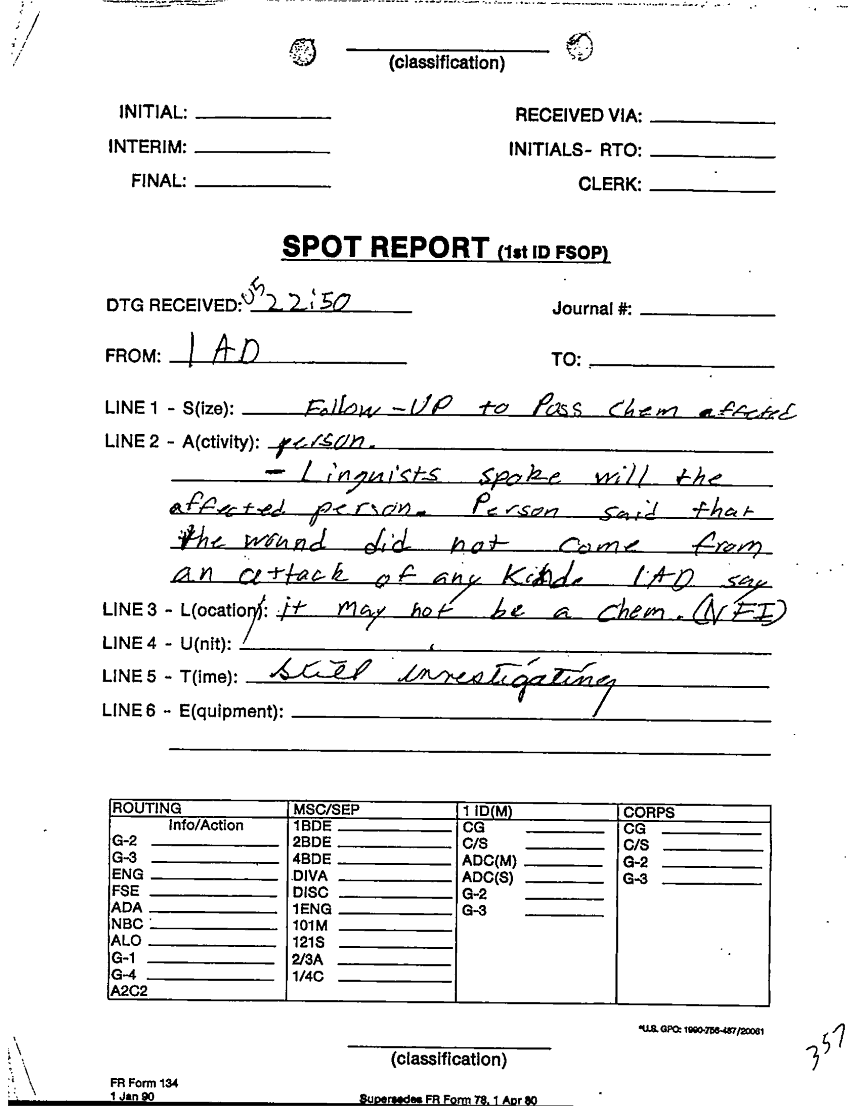 (classification)
INITIAL: RECEIVED VIA:
INTERIM: INITIALS- RTO:
FINAL: CLERK:
SPOT REPORT (1st ID FSOP)
DTG RECEIVED: 05 22:50 Journal #:
FROM: 1 AD TO:
LINE 1 - S(ize): Follow-UP to Poss Chem affected
LINE 2 - A(ctivity): person.
- Linguists spoke will the
affected person. Person said that
the wound did not come from
an attack of any Kinde 1AD say
LINE 3 - L(ocation): it may not be a chem. (NFI)
LINE 4 - U(nit):
LINE 5 - T(ime): still investigating
LINE 6 - E(quipment):
ROUTING MSC/SEP 1 ID(M) CORPS
Info/Action 1BDE CG CG
G-2 2BDE C/S C/S
G-3 4BDE ADC(M) G-2
ENG DIVA ADC(S) G-3
FSE DISC G-2
ADA 1ENG G-3
NBC 101M
ALO 121S
G-1 2/3A
G-4 1/4C
A2C2
*U.S. GPO: 1990-756-487/20061
357
(classification)
FR Form 134
1 Jan 90 Supersedes FR Form 78, 1 Apr 80